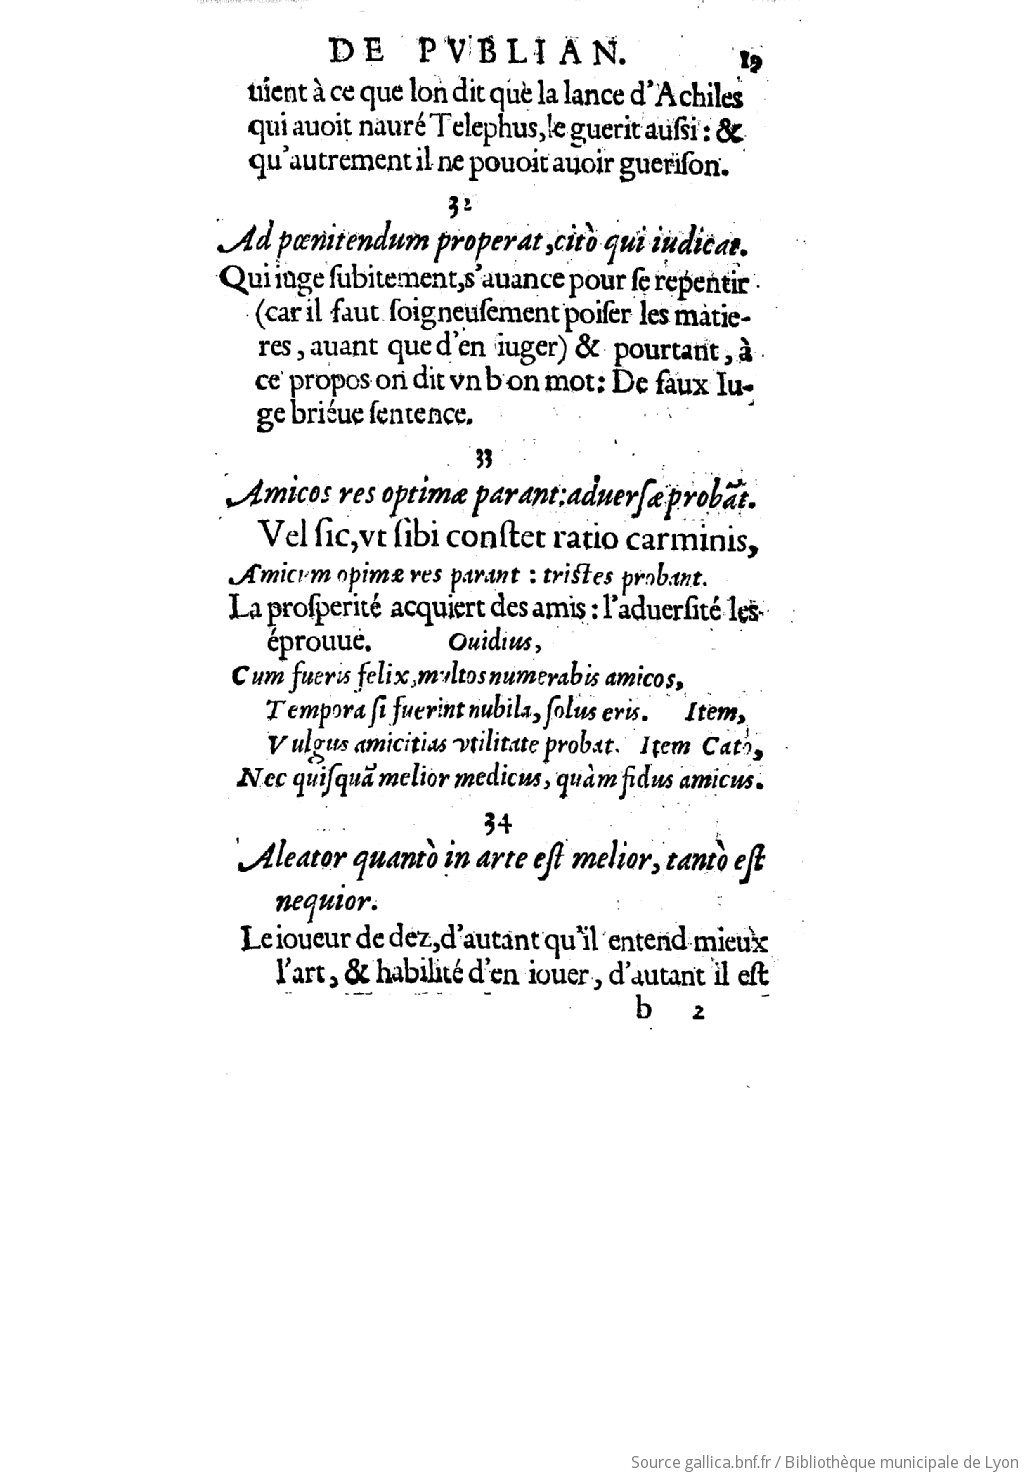 DE PVBLIAN. 19
uient à ce que lon dit que la lance d'Achiles
qui auoit nauré Telephus, le guerit auſsi : &
qu'autrement il ne pouoit auoir gueriſon.
32
Ad pœnitendum properat, citò qui iudicat.
Qui iuge ſubitement, s'auance pour ſe repentir
(car il faut ſoigneuſement poiſer les matie-
res, auant que d'en iuger) & pourtant, à
ce propos on dit vn bon mot: De faux Iu-
ge briéue ſentence.
33
Amicos res optimæ parant: aduerſæ probāt.
Vel ſic, vt ſibi conſtet ratio carminis,
Amicum opimæ res parant : triſtes probant.
La proſperité acquiert des amis : l'aduerſité les
éprouue. Ouidius,
Cum fueris felix, multos numerabis amicos,
Tempora ſi fuerint nubila, ſolus eris. Item,
Vulgus amicitias vtilitate probat. Item Cato,
Nec quiſquā melior medicus, quàm fidus amicus.
34
Aleator quantò in arte eſt melior, tantò eſt
nequior.
Le ioueur de dez, d'autant qu'il entend mieux
l'art, & habilité d'en iouer, d'autant il eſt
b 2
Source gallica.bnf.fr / Bibliothèque municipale de Lyon